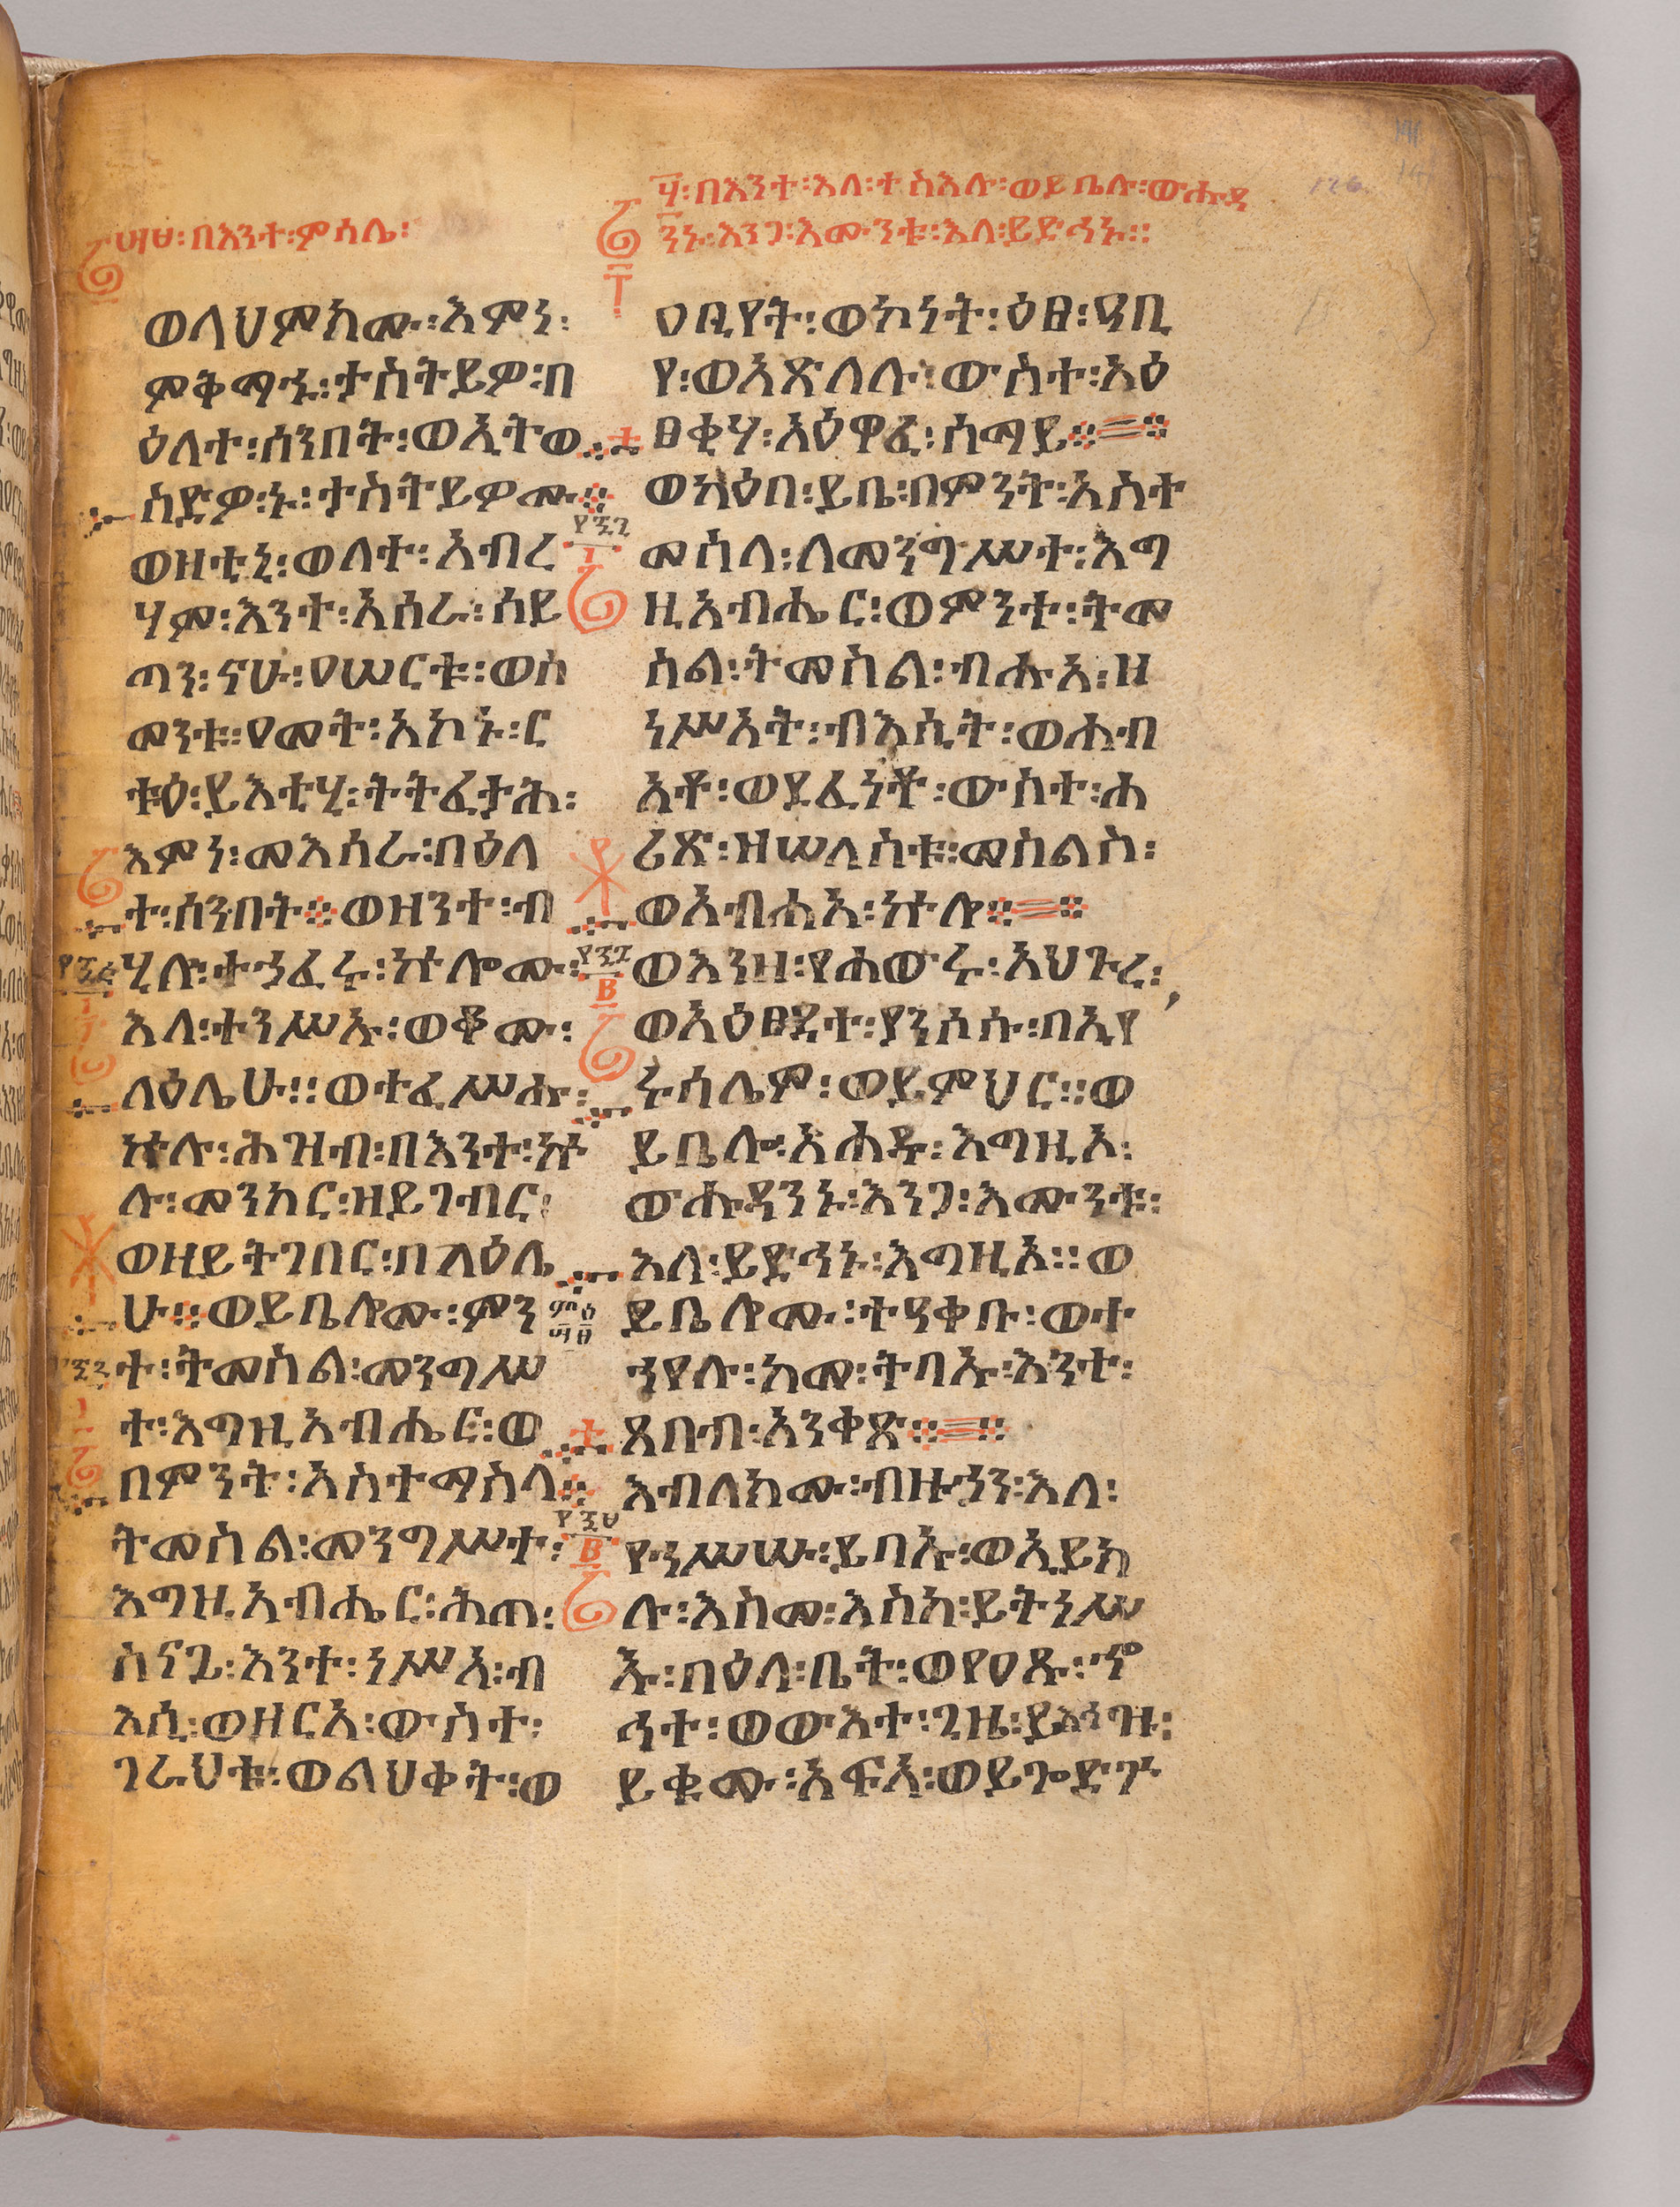 ፵፱፡ በእንተ፡ ምሳሌ፡
ወላህምክሙ፡ እምነ፡
ምቅማሑ፡ ታስትይዎ፡ በ
ዕለተ፡ ሰንበት፡ ወኢትወ
ስድዎ፡ ኑ፡ ታስትይዎሙ።
ወዛቲኒ፡ ወለተ፡ አብረ
ሃም፡ እንተ፡ አሰራ፡ ሰይ
ጣን፡ ናሁ፡ ዐሠርቱ፡ ወስ
መንቱ፡ ዐመት፡ አኮኑ፡ ር
ቱዕ፡ ይእቲሂ፡ ትትፈታሕ፡
እምነ፡ መእሰራ፡ በዕለ
ተ፡ ሰንበት። ወዘንተ፡ ብ
ሂሎ፡ ተኀፈሩ፡ ኵሎሙ፡
እለ፡ ተንሥኡ፡ ወቆሙ፡
ላዕሌሁ። ወተፈሥሑ፡
ኵሉ፡ ሕዝብ፡ በእንተ፡ ኵ
ሉ፡ መንክር፡ ዘይገብር፡
ወዘይትገበር፡ በላዕሌ
ሁ። ወይቤሎሙ፡ ምን
ተ፡ ትመስል፡ መንግሥ
ተ፡ እግዚአብሔር፡ ወ
በምንት፡ አስተማስላ።
ትመስል፡ መንግሥተ፡
እግዚአብሔር፡ ሕጠ፡
ስናፔ፡ እንተ፡ ነሥአ፡ ብ
እሲ፡ ወዘርአ፡ ውስተ፡
ገራህቱ፡ ወልህቀት፡ ወ
፶፡ በእንተ፡ እለ፡ ተስእሉ፡ ወይቤሉ፡ ውሑዳ
ንኑ፡ እንጋ፡ እሙንቱ፡ እለ፡ ይድኅኑ።
ዐቢየት፡ ወኮነት፡ ዕፀ፡ ዓቢ
የ፡ ወአጽለሉ፡ ውስተ፡ አዕ
ፀቂሃ፡ አዕዋፈ፡ ሰማይ።
ወካዕበ፡ ይቤ፡ በምንት፡ አስተ
መስላ፡ ለመንግሥተ፡ እግ
ዚአብሔር፡ ወምንተ፡ ትመ
ስል፡ ትመስል፡ ብሑአ፡ ዘ
ነሥአት፡ ብእሲት፡ ወሐብ
አቶ፡ ወደፈነቶ፡ ውስተ፡ ሐ
ሪጽ፡ ዘሠላስቱ፡ መስልስ፡
ወአብሐአ፡ ኵሎ።
ወእንዘ፡ የሐውር፡ አህጉረ፡
ወአዕፀዳተ፡ ያንሶሱ፡ በኢየ
ሩሳሌም፡ ወይምህር። ወ
ይቤሎ፡ አሐዱ፡ እግዚኦ፡
ውሑዳንኑ፡ እንጋ፡ እሙንቱ፡
እለ፡ ይድኅኑ፡ እግዚኦ። ወ
ይቤሎሙ፡ ተዓቀቡ፡ ወተ
ኀየሉ፡ ከመ፡ ትባኡ፡ እንተ፡
ጸበብ፡ አንቀጽ።
እብለክሙ፡ ብዙኃን፡ እለ፡
የኀሥሡ፡ ይባኡ፡ ወኢይክ
ሉ፡ እስመ፡ እስከ፡ ይትነሥ
እ፡ በዕለ፡ ቤት፡ ወየዐጹ፡ ኆ
ኅተ፡ ወውእተ፡ ጊዜ፡ ይእኅዙ፡
ይቁሙ፡ አፍአ፡ ወይጐድጕ